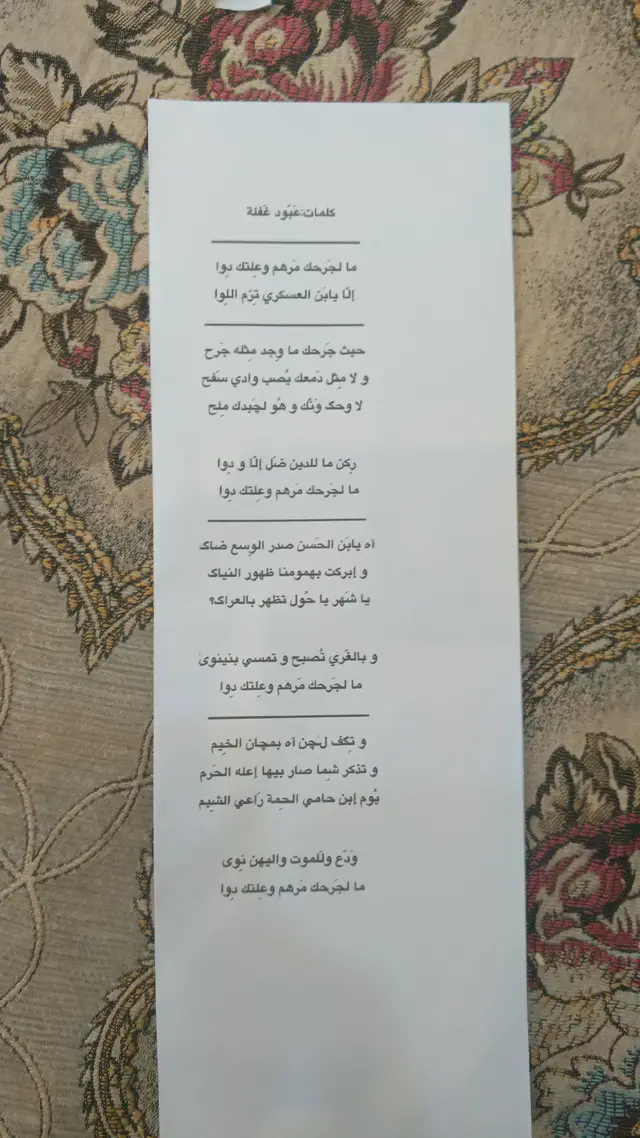 كلمات:عَبّود غَفلة
ما لجَرحك مَرهم وعلِتك دِوا
إلّا يابَن العسكري تِرّم اللِوا
حيث جَرحك ما وِجد مِثله جَرح
و لا مِثل دَمعك يُصب وادي سَفَح
لا وحك وَنّك و هُو لچَبدك مِلَح
رِكن ما للدين ضَل إلّا و دِوا
ما لجَرحك مَرهم وعلِتك دِوا
آه يابَن الحَسن صدر الوِسِع ضاك
و إبركت بهمومنا ظهور النياك
يا شَهر يا حُول تظهر بالعراك؟
و بالغَري تُصبح و تمسي بنينوى
ما لجَرحك مَرهم وعلِتك دِوا
و تِكَف لـچن آه بمچان الخِيم
و تذكر شبِما صار بيها إعله الحَرم
يُوم إبن حامي الحِمة رَاعي الشِيم
وَدّع وللموت واليهن نِوى
ما لجَرحك مَرهم وعلِتك دِوا